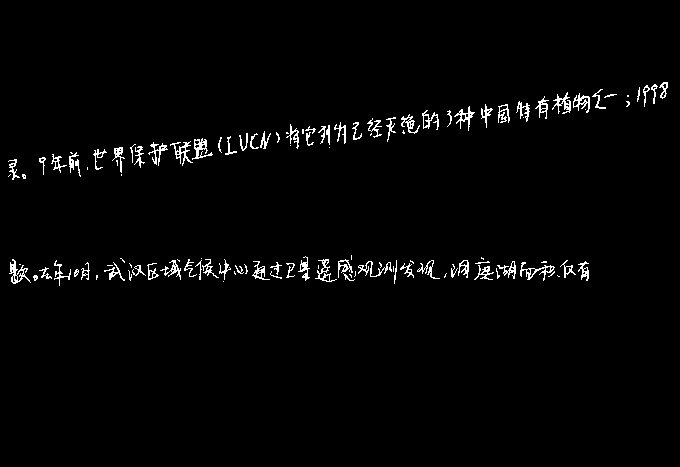 灵。9年前,世界保护联盟(IUCN)将它列为已经灭绝的3种中国特有植物之一;1998
题。去年10月,武汉区域气候中心通过卫星遥感观测发现,洞庭湖面积仅有